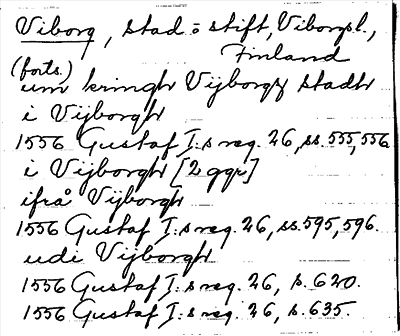 Viborg, stad o stift, Viborgsl.,
Finland
(forts.)
um kringh Vijborgz stadh
i Vijborgh
1556 Gustaf I:s reg. 26, ss. 555, 556
i Vijborgh [2 ggr]
ifrå Vijborgh
1556 Gustaf I:s reg. 26, ss. 595, 596.
udi Vijborgh
1556 Gustaf I:s reg. 26, s. 620.
1556 Gustaf I:s reg. 26, s. 635.